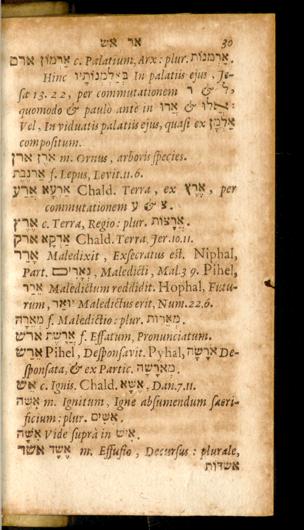 אר אש 30
ארם אַרְמוֹן c. Palatium, Arx: plur. אַרְמְנוֹת.
Hinc בְּאַלְמְנוֹתָיו In palatiis ejus, Je-
saæ 13.22, per commutationem ר & ל,
quomodo & paulo ante in אֲרוּ & אֲלוּ:
Vel, In viduatis palatiis ejus, quasi ex אַלְמָן
compositum.
ארן אֹרֶן m. Ornus, arboris species.
אַרְנֶבֶת f. Lepus, Levit. 11.6.
ארע אַרְעָא Chald. Terra, ex אֶרֶץ, per
commutationem ע & צ.
אֶרֶץ c. Terra, Regio: plur. אֲרָצוֹת.
ארק אַרְקָא Chald. Terra. Jer. 10.11.
אָרַר Maledixit, Exsecratus est. Niphal,
Part. נֶאָרִים, Maledicti, Mal. 3 9. Pihel,
אֵרַר Maledictum reddidit. Hophal, Futu-
rum, יוּאָר Maledictus erit, Num. 22.6.
מְאֵרָה f. Maledictio: plur. מְאֵרוֹת.
ארש אֲרֶשֶׁת f. Effatum, Pronunciatum.
אֵרַשׂ Pihel, Desponsavit. Pyhal, אֹרָשָׂה De-
sponsata, & ex Partic. מְאֹרָשָׂה.
אֵשׁ c. Ignis. Chald. אֶשָּׁא, Dan. 7.11.
אִשֶּׁה m. Ignitum, Igne absumendum sacri-
ficium: plur. אִשִּׁים.
אִשָּׁה Vide suprà in אִישׁ.
אשד אֶשֶׁד m. Effusio, Decursus: plurale,
אשדות